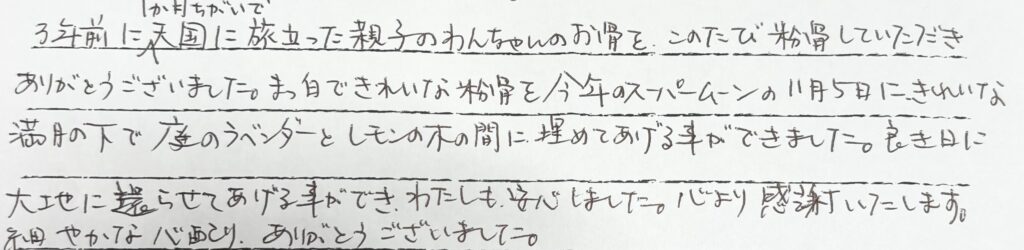 1か月ちがいで
3年前に天国に旅立った親子のわんちゃんのお骨を、このたび粉骨していただき
ありがとうございました。まっ白できれいな粉骨を今年のスーパームーンの11月5日に、きれいな
満月の下で庭のラベンダーとレモンの木の間に埋めてあげる事ができました。良き日に
大地に還らせてあげる事ができ、わたしも安心しました。心より感謝いたします。
細やかな心配り、ありがとうございました。